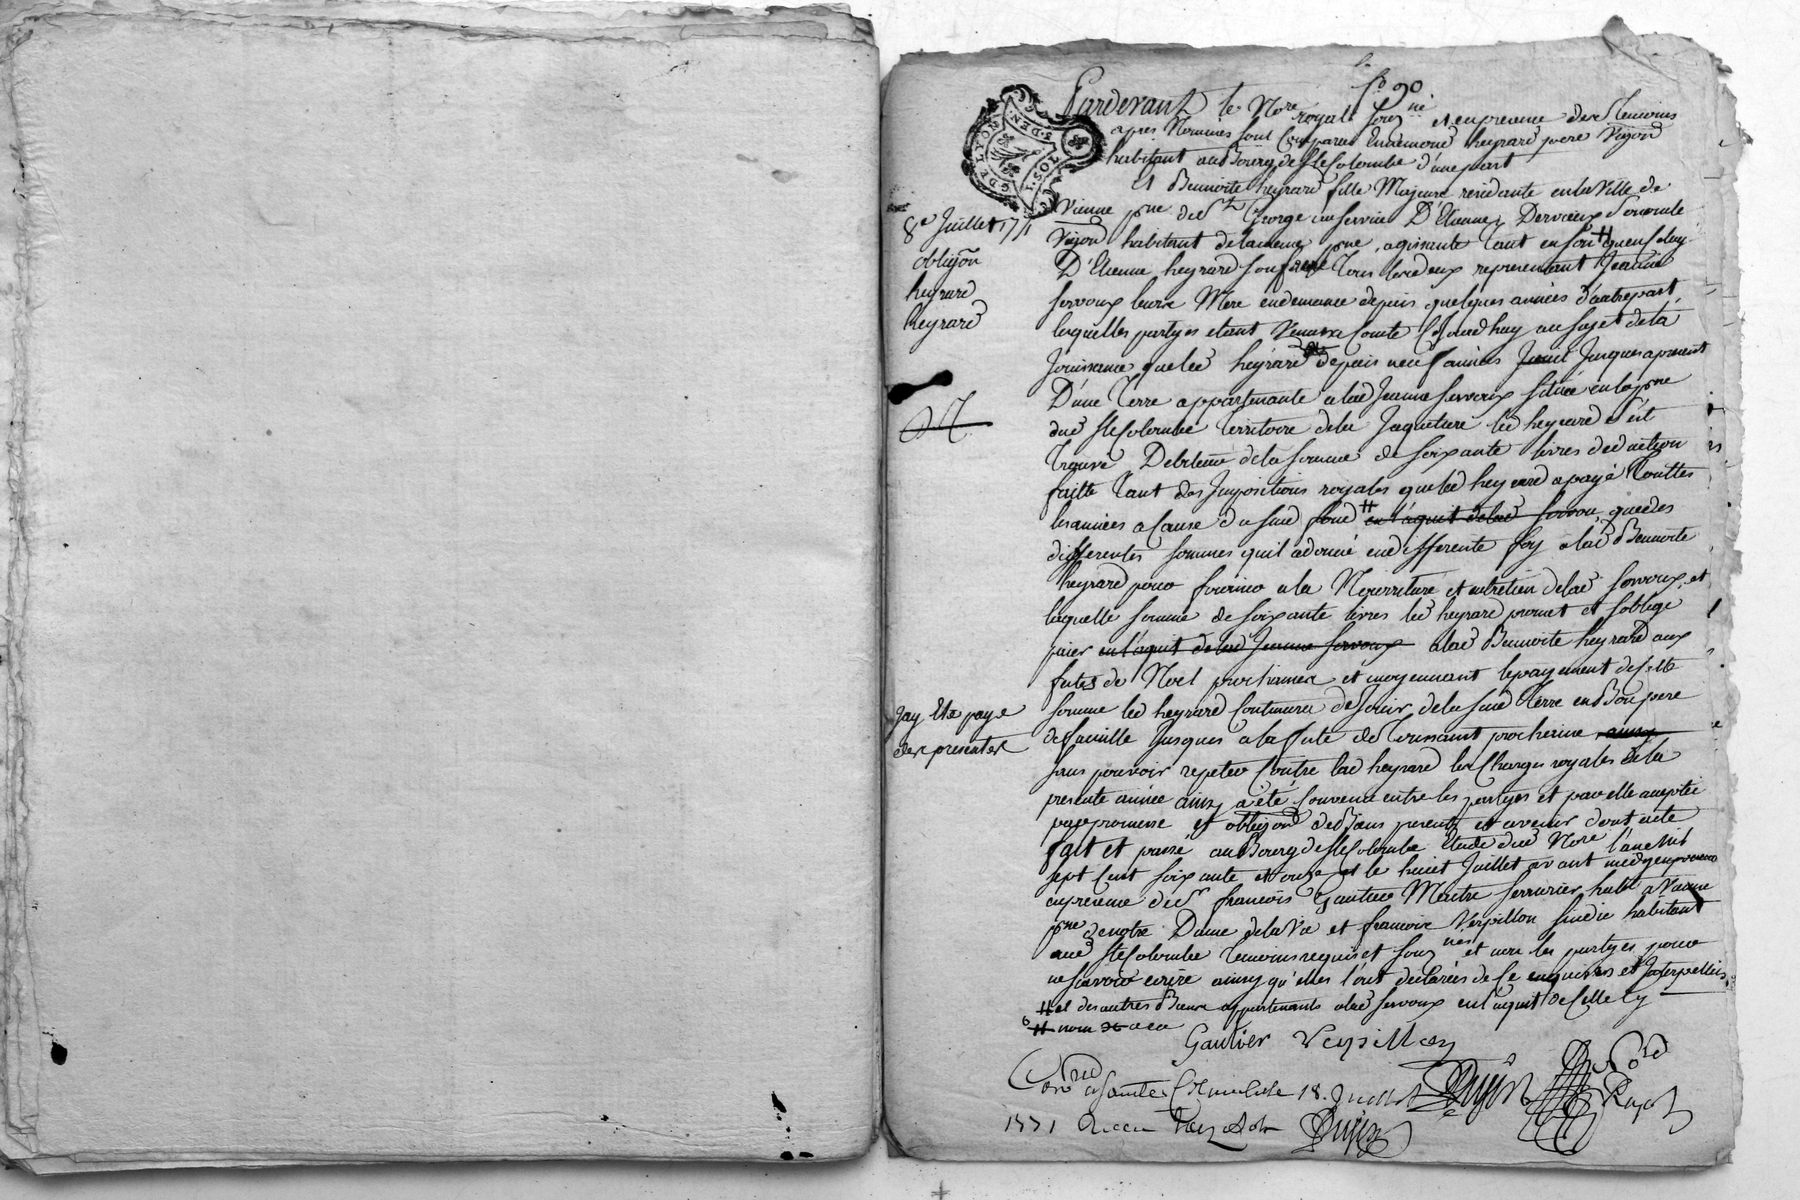 fo 90
Pardevant le Nore royal souz.né et en presence des temoins
apres Nommés sont Comparus Ennemond heyrard pere Vigon
habitant au Bourg de Ste Colombe d'une part
et Benoite heyrard fille Majeure residante en la Ville de
Vienne psse de St George au service D'Etienne Dervieux
Vigon habitant de la meme psse, agissante tant en son # que en celuy
D'Etienne heyrard son frere tous les deux representant Jeanne
servoux leur Mere en demance depuis quelques années d'autre part
lesquelles partyes etant Venues a Comte Cejourdhuy au sujet de la
Jouissance que led heyrard a depuis neuf années Jusques a present
D'une Terre appartenante a lad Jeanne servoux située en la psse
dud Ste Colombe Territoire de la Jaquetiere led heyrard s'est
trouvé Debiteur de la somme de soixante livres deduction
faitte tant des Impositions royales que led heyrard a payé touttes
les années a Cause du sud fond # en l'aquit de lad servou, que des
differentes sommes qu'il a donné en differente foy a lad Benoite
heyrard pour fournir a la Nourriture et entretien de lad servoux, et
laquelle somme de soixante livres led heyrard promet et s'oblige
paier en l'aquit de lad Jeanne servoux a lad Benoite heyrard aux
fetes de Noel prochaines et moyennant le payement de cette
somme led heyrard Continuera de Jouir de la sud terre en Bon pere
de famille Jusques a la fete de Toussaint prochaine ainsy
sans pouvoir repeter Contre lad heyrard les Charges royales de la
presente année ainsy a été Convenu entre les partyes et par elle acceptée
par promesse et obligon de Biens presents et avenir dont acte
fait et passé au Bourg de Ste Colombe Etude dud Nore l'an Mil
sept Cent soixante et onze et le huit Juillet avant midy en presence
en presence de sr francois Gautier Maitre serrurier habt a Vienne
psse de notre Dame de la Vie et francois Verpillon sindic habitant
aud Ste Colombe temoins requis et souz.nés et non les partyes pour
ne scavoir ecrire ainsy qu'elles l'ont declarées de ce enquises et Interpellées
# et des autres Biens appartenants a lad servoux en l'aquit de Celle cy
# nom
Gautier Verpillon
Conrollé a Sainte Colombe le 18. Juillet
1771 Recu
8e Juillet 1771
obligon
heyrard
heyrard
Jay Ete payé
des presentes
G. DE LYON
SOL
DEN